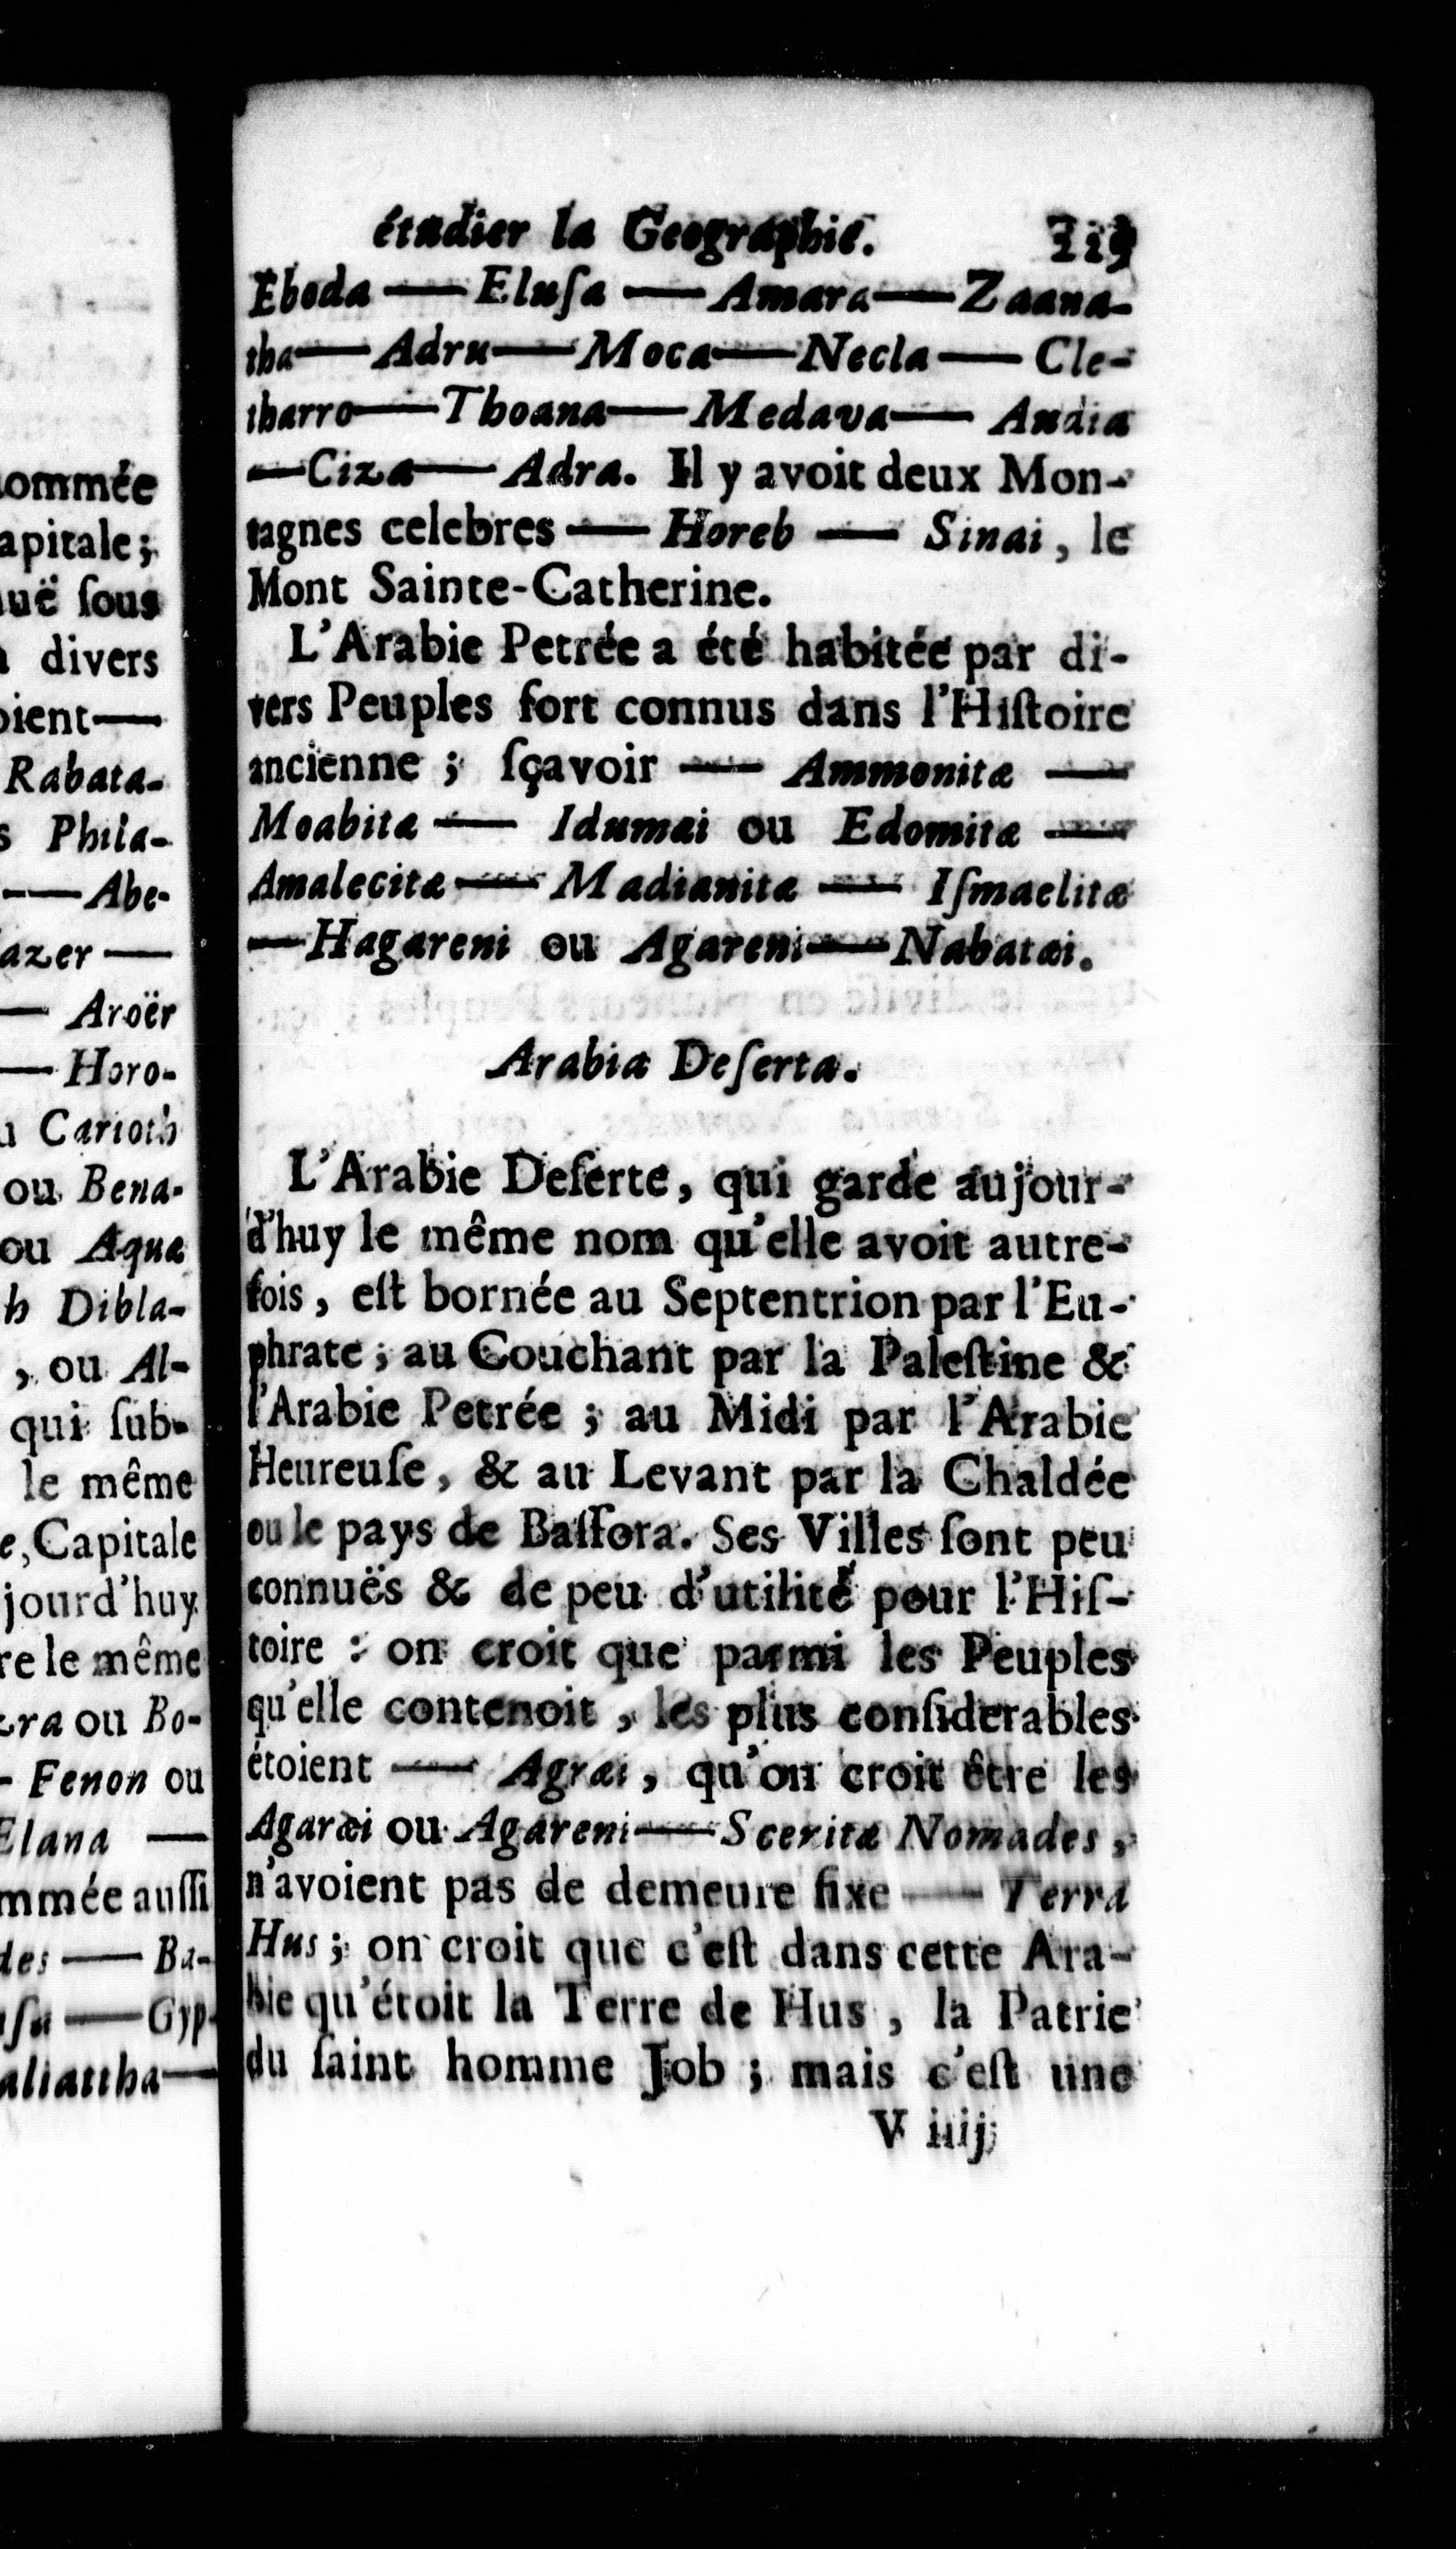 étudier la Geographie.
Eboda — Eluſa — Amara — Zaana-
tha — Adru — Moca — Necla — Cle-
tharro — Thoana — Medava — Audia
— Ciza — Adra. Il y avoit deux Mon-
tagnes celebres — Horeb — Sinai, le
Mont Sainte-Catherine.
L'Arabie Petrée a été habitée par di-
vers Peuples fort connus dans l'Hiſtoire
ancienne ; ſçavoir — Ammonitæ —
Moabitæ — Idumæi ou Edomitæ —
Amalecitæ — Madianitæ — Iſmaelitæ
— Hagareni ou Agareni — Nabatæi.
Arabia Deſerta.
L'Arabie Deſerte, qui garde aujour-
d'huy le même nom qu'elle avoit autre-
fois, eſt bornée au Septentrion par l'Eu-
phrate ; au Couchant par la Paleſtine &
l'Arabie Petrée ; au Midi par l'Arabie
Heureuſe, & au Levant par la Chaldée
ou le pays de Baſſora. Ses Villes ſont peu
connuës & de peu d'utilité pour l'Hiſ-
toire : on croit que parmi les Peuples
qu'elle contenoit, les plus conſiderables
étoient — Agræi, qu'on croit être les
Agaræi ou Agareni — Sceritæ Nomades,
n'avoient pas de demeure fixe — Terra
Hus ; on croit que c'eſt dans cette Ara-
bie qu'étoit la Terre de Hus, la Patrie
du ſaint homme Job ; mais c'eſt une
V iiij
ommée
apitale ;
uë ſous
divers
oient —
Rabata-
s Phila-
— Abe-
azer —
— Aroër
— Horo-
Carioth
ou Bena-
ou Aquæ
h Dibla-
, ou Al-
qui ſub-
le même
e, Capitale
jourd'huy
re le même
ra ou Bo-
- Fenon ou
Elana —
mmée auſſi
des — Ba-
ſa — Gyp-
aliattha —